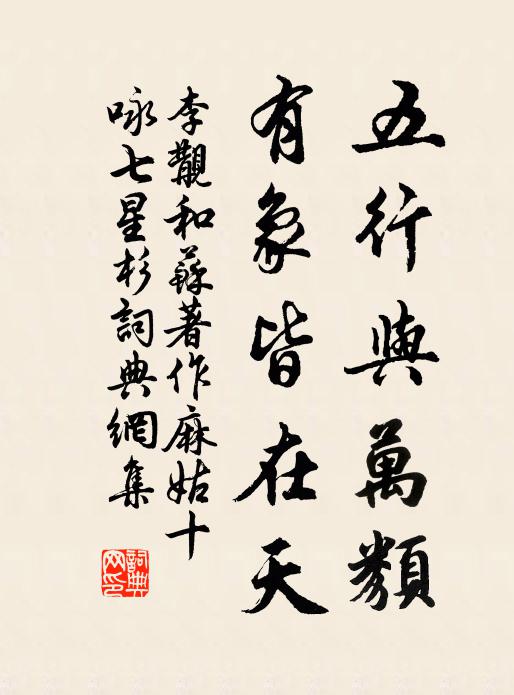 五行與萬類
有象皆在天
李覯和蘇著作麻姑十
咏七星杉詞典網集
詞典
网印